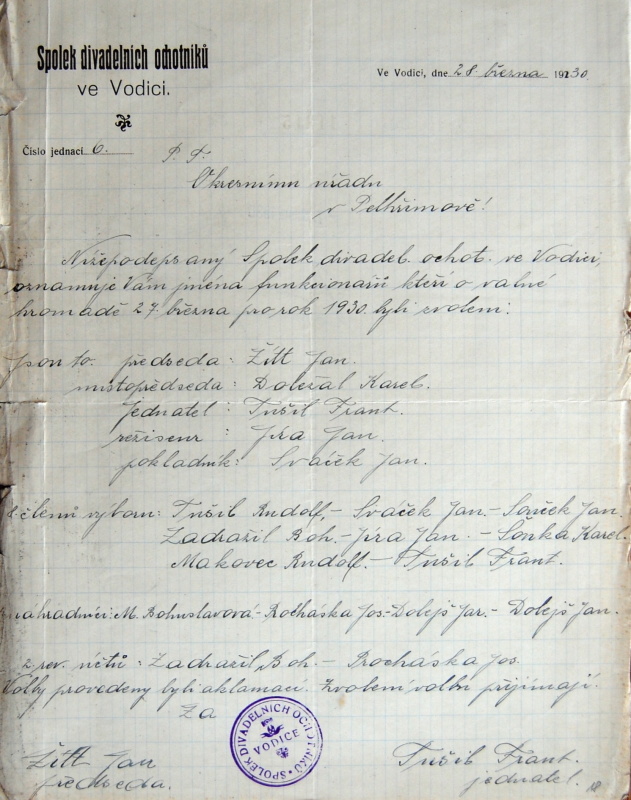 Spolek divadelních ochotníků
ve Vodici.
Ve Vodici, dne 28. března 1930
Číslo jednací 6.
P. T.
Okresnímu úřadu
v Pelhřimově!
Nížepodepsaný Spolek divadel. ochot. ve Vodici,
oznamuje Vám jména funkcionářů kteří o valné
hromadě 27. března pro rok 1930 byli zvoleni:
Jsou to: předseda: Žitt Jan.
místopředseda: Doležal Karel.
Jednatel: Tušil Frant.
režiseur: Jíra Jan.
pokladník: Sváček Jan.
členů výboru: Tušil Rudolf, - Sváček Jan. - Souček Jan.
Zadražil Boh. - Jíra Jan. - Šonka Karel.
Makovec Rudolf. - Tušil Frant.
náhradníci: M. Bohuslavová - Rocháska Jos. - Dolejš Jar. - Dolejš Jan.
z rev. účtů: Zadražil Boh. - Procháska Jos.
Volby provedeny byli aklamací. Zvolení volbu přijímají.
Za
SPOLEK DIVADELNÍCH OCHOTNÍKŮ
VODICE
Žitt Jan
předseda.
Tušil Frant.
jednatel.